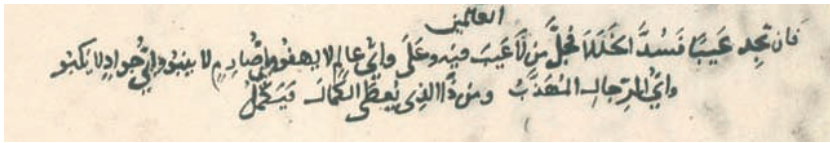 العالمين
فان تجد عَيبًا فَسُدَّ الخَلَلَا فجلَّ من لَا عَيبَ فيه وعَلَى وايُّ عالِمٍ لا يهفو وايُّ صارِمٍ لا ينبو وايُّ جوادٍ لا يكبو
وايُّ الرِّجالِ المُهَذَّبُ ومن ذَا الذى يُعطَى الكمالَ فيَكْمُلُ